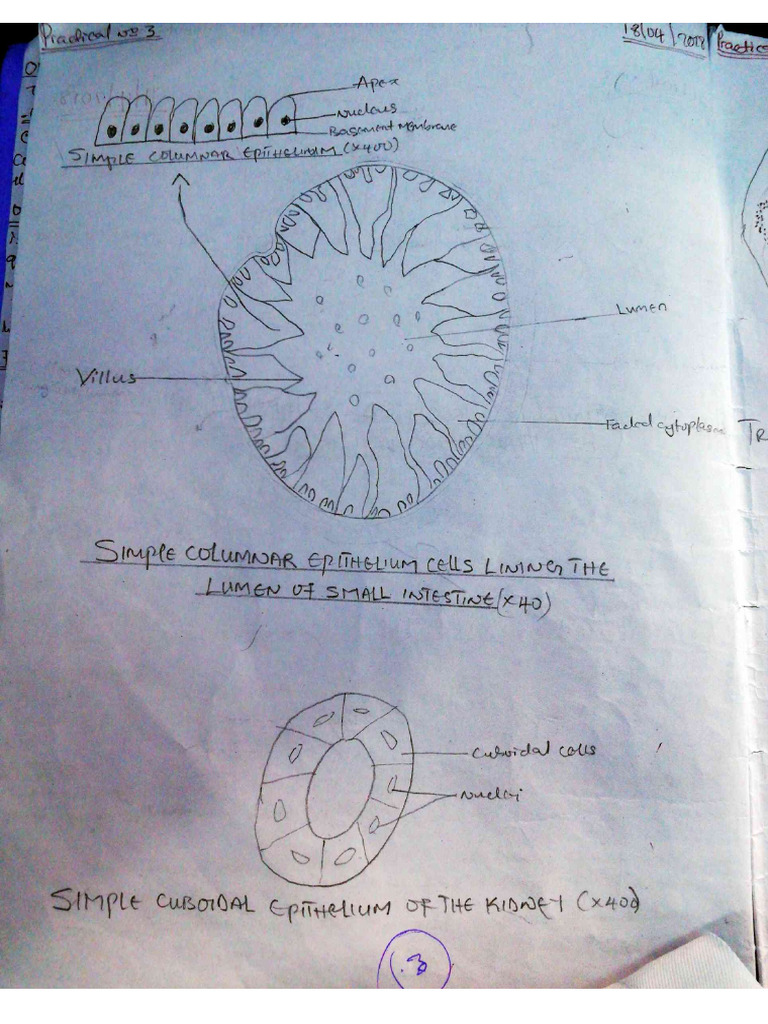 Practical No 3
18/04/2018
Practic
Apex
Nucleus
Basement Membrane
SIMPLE COLUMNAR EPITHELIUM (X400)
Lumen
Villus
Faded cytoplasm
TR
SIMPLE COLUMNAR EPITHELIUM CELLS LINING THE
LUMEN OF SMALL INTESTINE (X40)
Cuboidal cells
Nuclei
SIMPLE CUBOIDAL EPITHELIUM OF THE KIDNEY (X400)
3